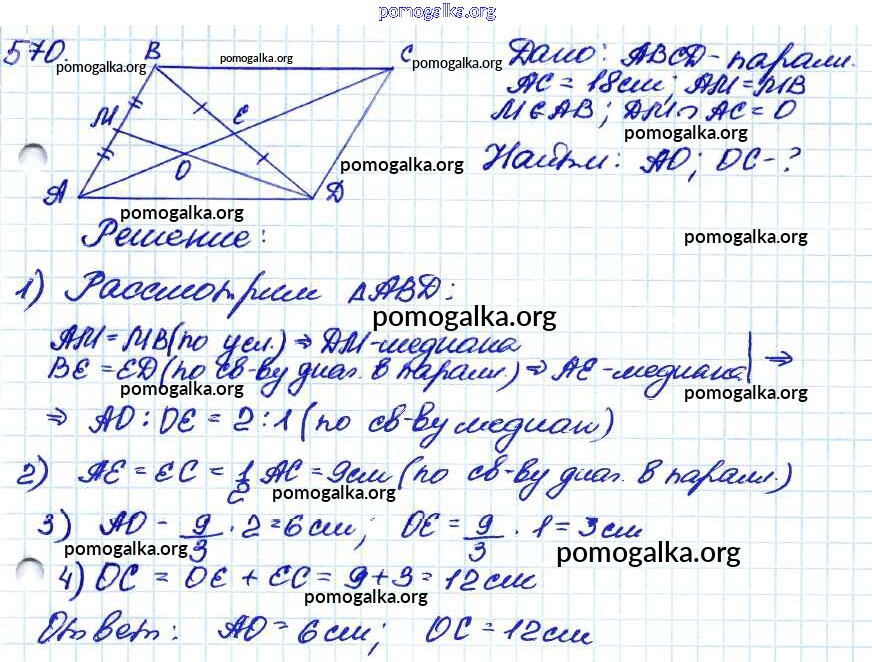 pomogalka.org
570.
B
C
M
E
O
A
D
pomogalka.org
pomogalka.org
pomogalka.org
Дано: ABCD - паралл.
AC = 18см; AM = MB
M ∈ AB; DM ∩ AC = O
pomogalka.org
Найти: AO; OC - ?
pomogalka.org
pomogalka.org
Решение:
pomogalka.org
1) Рассмотрим ΔABD:
pomogalka.org
AM = MB (по усл.) ⇒ DM - медиана
BE = ED (по св-ву диаг. в паралл.) ⇒ AE - медиана | ⇒
pomogalka.org
pomogalka.org
⇒ AO : OE = 2 : 1 (по св-ву медиан)
2) AE = EC = 1/2 AC = 9см (по св-ву диаг. в паралл.)
pomogalka.org
3) AO - 9/3 · 2 = 6см; OE = 9/3 · 1 = 3см
pomogalka.org
pomogalka.org
4) OC = OE + EC = 9 + 3 = 12см
pomogalka.org
Ответ: AO = 6см; OC = 12см